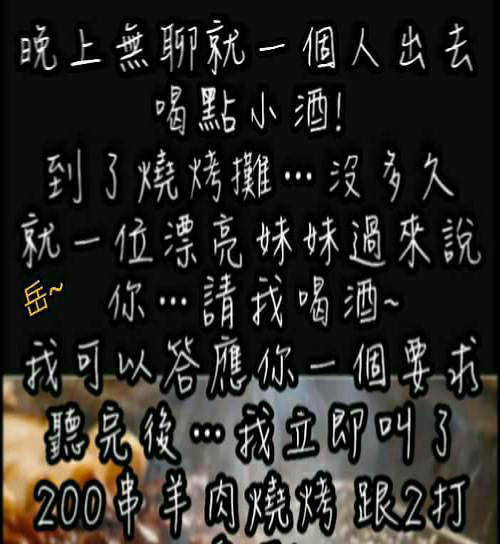 晚上無聊就一個人出去
喝點小酒!
到了燒烤攤…沒多久
就一位漂亮妹妹過來說
岳~
你…請我喝酒~
我可以答應你一個要求
聽完後…我立即叫了
200串羊肉燒烤跟2打